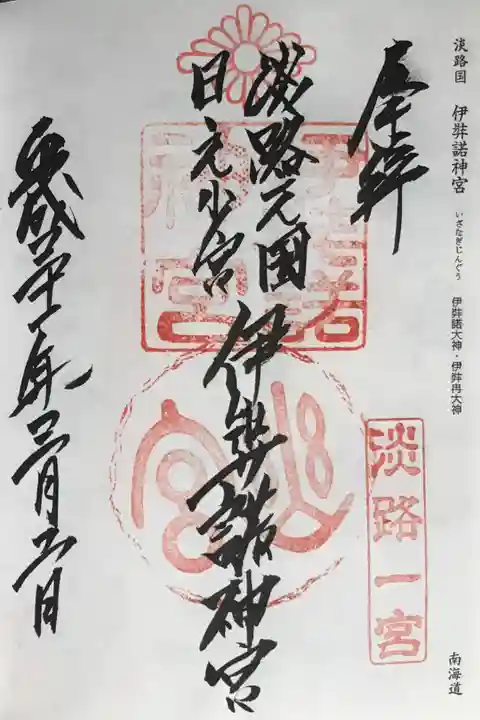 淡路国 伊弉諾神宮 いざなぎじんぐう 伊弉諾大神・伊弉冉大神
南海道
奉拝
淡路元国
日之少宮
伊弉諾神宮
伊弉諾神宮
淡路一宮
平成三十一年三月六日